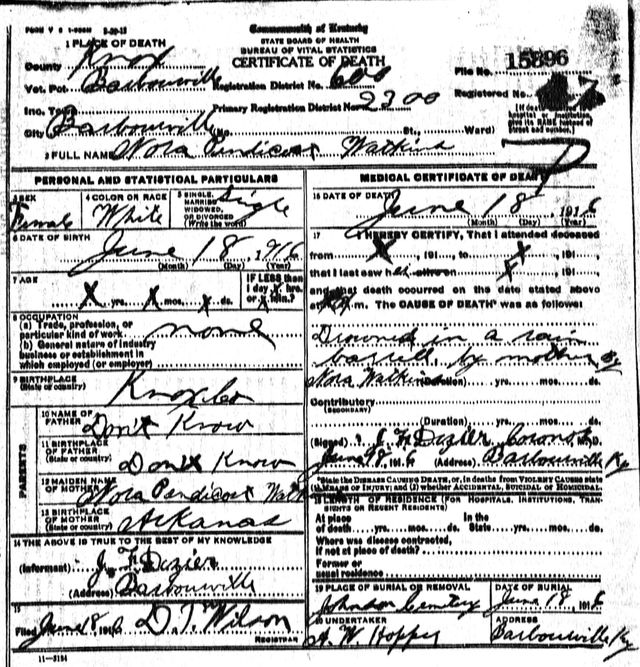 FORM V S 1-
Commonwealth of Kentucky
STATE BOARD OF HEALTH
BUREAU OF VITAL STATISTICS
CERTIFICATE OF DEATH
1 PLACE OF DEATH
County Knox
Vot. Pct. Barbourville Registration District No. 600
File No. 15896
Inc. Primary Registration District No. 2200
Registered No.
City Barbourville (No. St., Ward)
[If death
hospital or institution,
give its NAME instead of
street and number.]
2 FULL NAME Nora Watkins
PERSONAL AND STATISTICAL PARTICULARS
3 SEX Female
4 COLOR OR RACE White
5 SINGLE, MARRIED, WIDOWED, OR DIVORCED (Write the word) Single
6 DATE OF BIRTH
June 18, 1916
(Month) (Day) (Year)
7 AGE
X yrs. X mos. X ds.
IF LESS than 1 day X hrs. or X min.?
8 OCCUPATION
(a) Trade, profession, or
particular kind of work none
(b) General nature of industry
business or establishment in
which employed (or employer)
9 BIRTHPLACE
(State or country) Knox Co
PARENTS
10 NAME OF FATHER Don't Know
11 BIRTHPLACE OF FATHER (State or country) Don't Know
12 MAIDEN NAME OF MOTHER Nora
13 BIRTHPLACE OF MOTHER (State or country) Arkanas
14 THE ABOVE IS TRUE TO THE BEST OF MY KNOWLEDGE
(Informant) J. F. Dozier
(Address) Barbourville
15
Filed June 18 1916 D. T. Wilson
REGISTRAR
11-3184
MEDICAL CERTIFICATE OF DEATH
16 DATE OF DEATH
June 18, 1916
(Month) (Day) (Year)
17 I HEREBY CERTIFY, That I attended deceased
from X, 191, to X, 191
that I last saw h alive on X, 191
and that death occurred on the date stated above
at m. The CAUSE OF DEATH was as follows:
Drowned in a rain
barrell, by mother
Nora Watkins (Duration) yrs. mos. ds.
Contributory
(SECONDARY)
(Duration) yrs. mos. ds.
(Signed) J F Dozier Coroner, M.D.
June 1916 (Address) Barbourville Ky
State the DISEASE CAUSING DEATH, or, in deaths from VIOLENT CAUSES state
(1) MEANS OF INJURY; and (2) whether ACCIDENTAL, SUICIDAL OR HOMICIDAL.
18 LENGTH OF RESIDENCE (FOR HOSPITALS, INSTITUTIONS, TRANSIENTS OR RECENT RESIDENTS)
At place In the
of death yrs. mos. ds. State yrs. mos. ds.
Where was disease contracted,
if not at place of death?
Former or
usual residence
19 PLACE OF BURIAL OR REMOVAL DATE OF BURIAL
Johnson Cemetery June 18, 1916
20 UNDERTAKER ADDRESS
A. W. Hopper Barbourville Ky